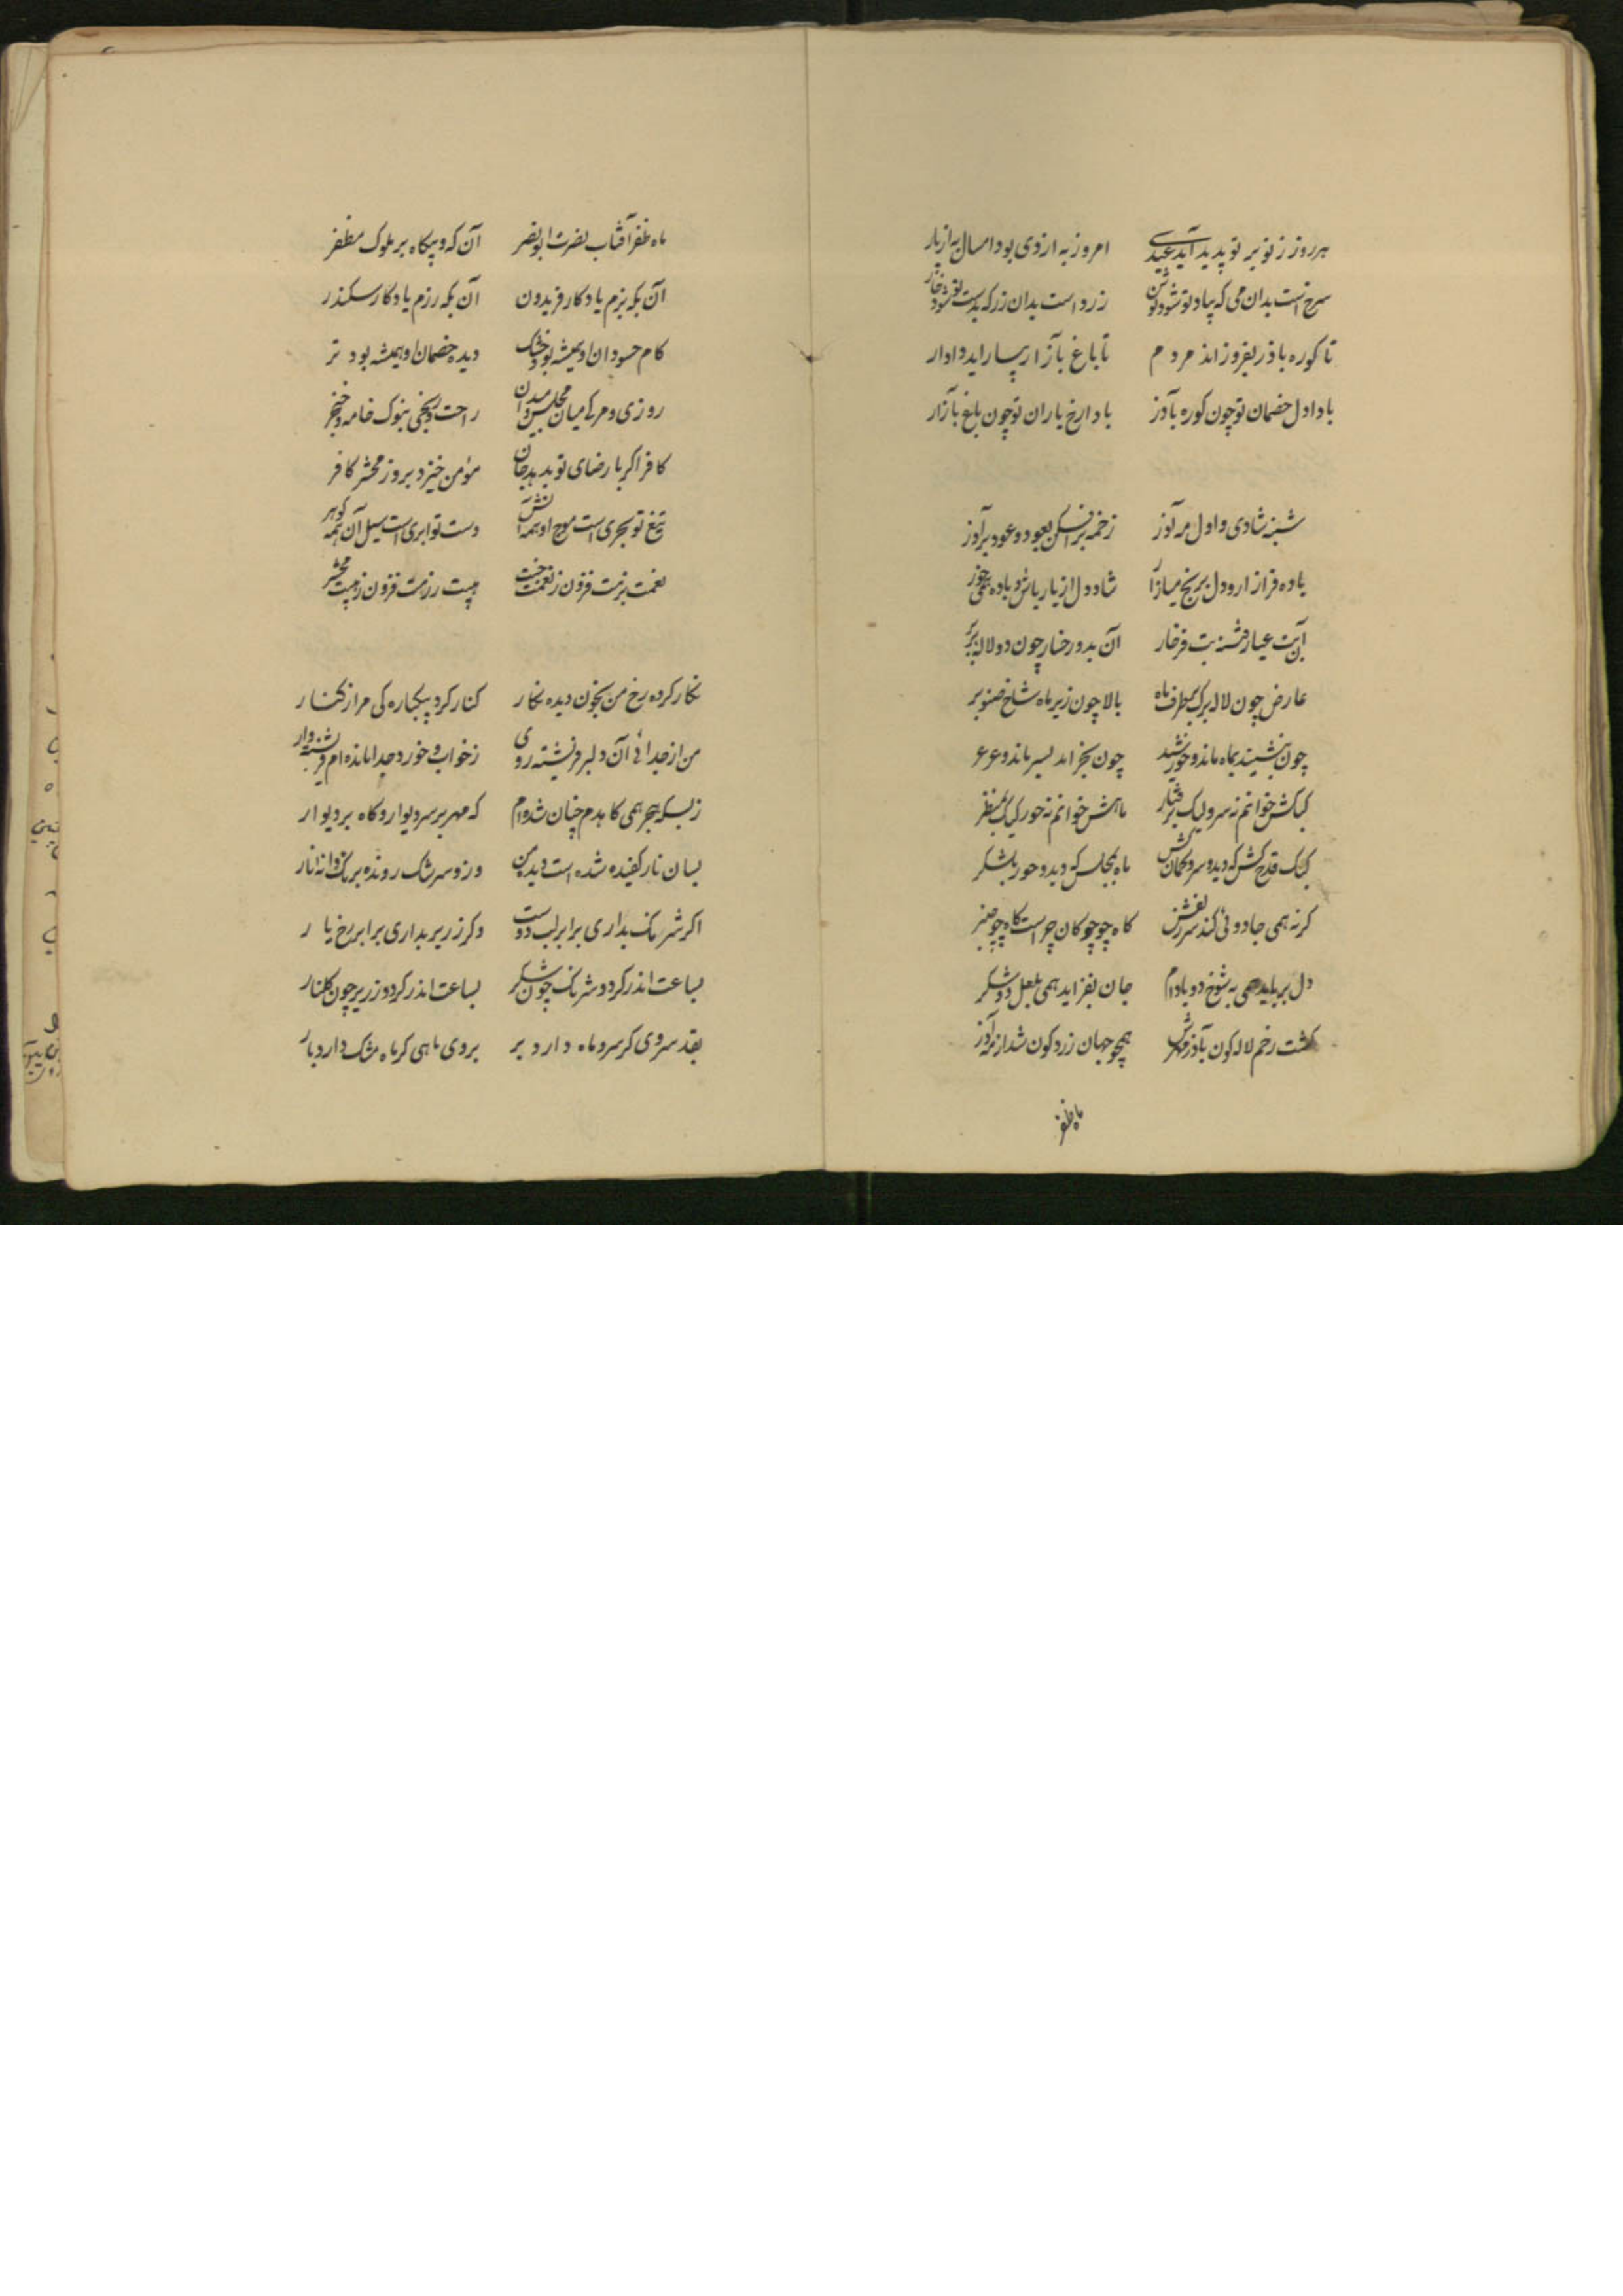 هر روز ز نو بر تو پدید آید عیدی امروز به از دی بود امسال به از پار
سرخ است بدان می که بیاد تو شود نوش زرد است بدان زر که بدست تو شود خوار
تا کوره باذر بفروزاند مردم تا باغ بآزار بیاراید دادار
بادا دل خصمان تو چون کوره بآذر بادا رخ یاران تو چون باغ بآزار
شنبه شادی و اول مه آذر زخمه برافکن بعود و عود برآذر
باده فراز آر و دل برنج میازار شاد دل از یار باش و باده همی خور
آن بت عیار فتنه بت فرخار آن بدو رخسار چون دو لاله ببر بر
عارض چون لاله برک بر طرف ماه بالا چون زیر ماه شاخ صنوبر
چون بنشیند بماه ماند و خورشید چون بخرامد بسرو ماند و عرعر
کبکش خوانم نه سرو لیک برفتار ماهش خوانم نه حور لیک بمنظر
کبک قدح کش که دید و سرو کمان کش ماه بمجلس که دید و حور بلشکر
کرنه همی جادوئی کند سر زلفش کاه چو چوکان چراست کاه چو چنبر
دل برباید همی به شوخ دو بادام جان بفزاید همی بلعل دو شکر
کشت رخم لاله کون بآذر مهرش همچو جهان زرد کون شد از مه آذر
ماه ظفر
ماه ظفر آفتاب نصرت ابونصر آن که و بیکاه بر ملوک مظفر
آن بکه بزم یادکار فریدون آن بکه رزم یادکار سکندر
کام حسودان او همیشه بود خشک دیده خصمان او همیشه بود تر
روزی و مرک میان مجلس و میدان راحت و رنجی بنوک خامه و خنجر
کافر اکر با رضای تو بدهد جان مؤمن خیزد بروز محشر کافر
تیغ تو بحری است موج او همه آتش دست تو ابری است سیل آن همه کوهر
نعمت بزمت فزون ز نعمت جنت هیبت رزمت فزون ز هیبت محشر
نکار کرده رخ من بخون دیده نکار کنار کرد بیکباره کی مرا ز کنار
من از جدائی آن دلبر فرشته روی ز خواب و خورد جدا مانده ام فرشته وار
ز بسکه هجر همی کاهدم چنان شده ام که مهر بر سر دیوار و کاه بر دیوار
بسان نار کفیده شده است دیده من وزو سرشک رونده برنک دانه نار
اکر شرنک بداری برابر لب دوست وکر زریر بداری برابر رخ یار
بساعت اندر کردد شرنک چون شکر بساعت اندر کردد زریر چون کلنار
بقد سروی کر سرو ماه دارد بر بروی ماهی کر ماه مشک دارد بار